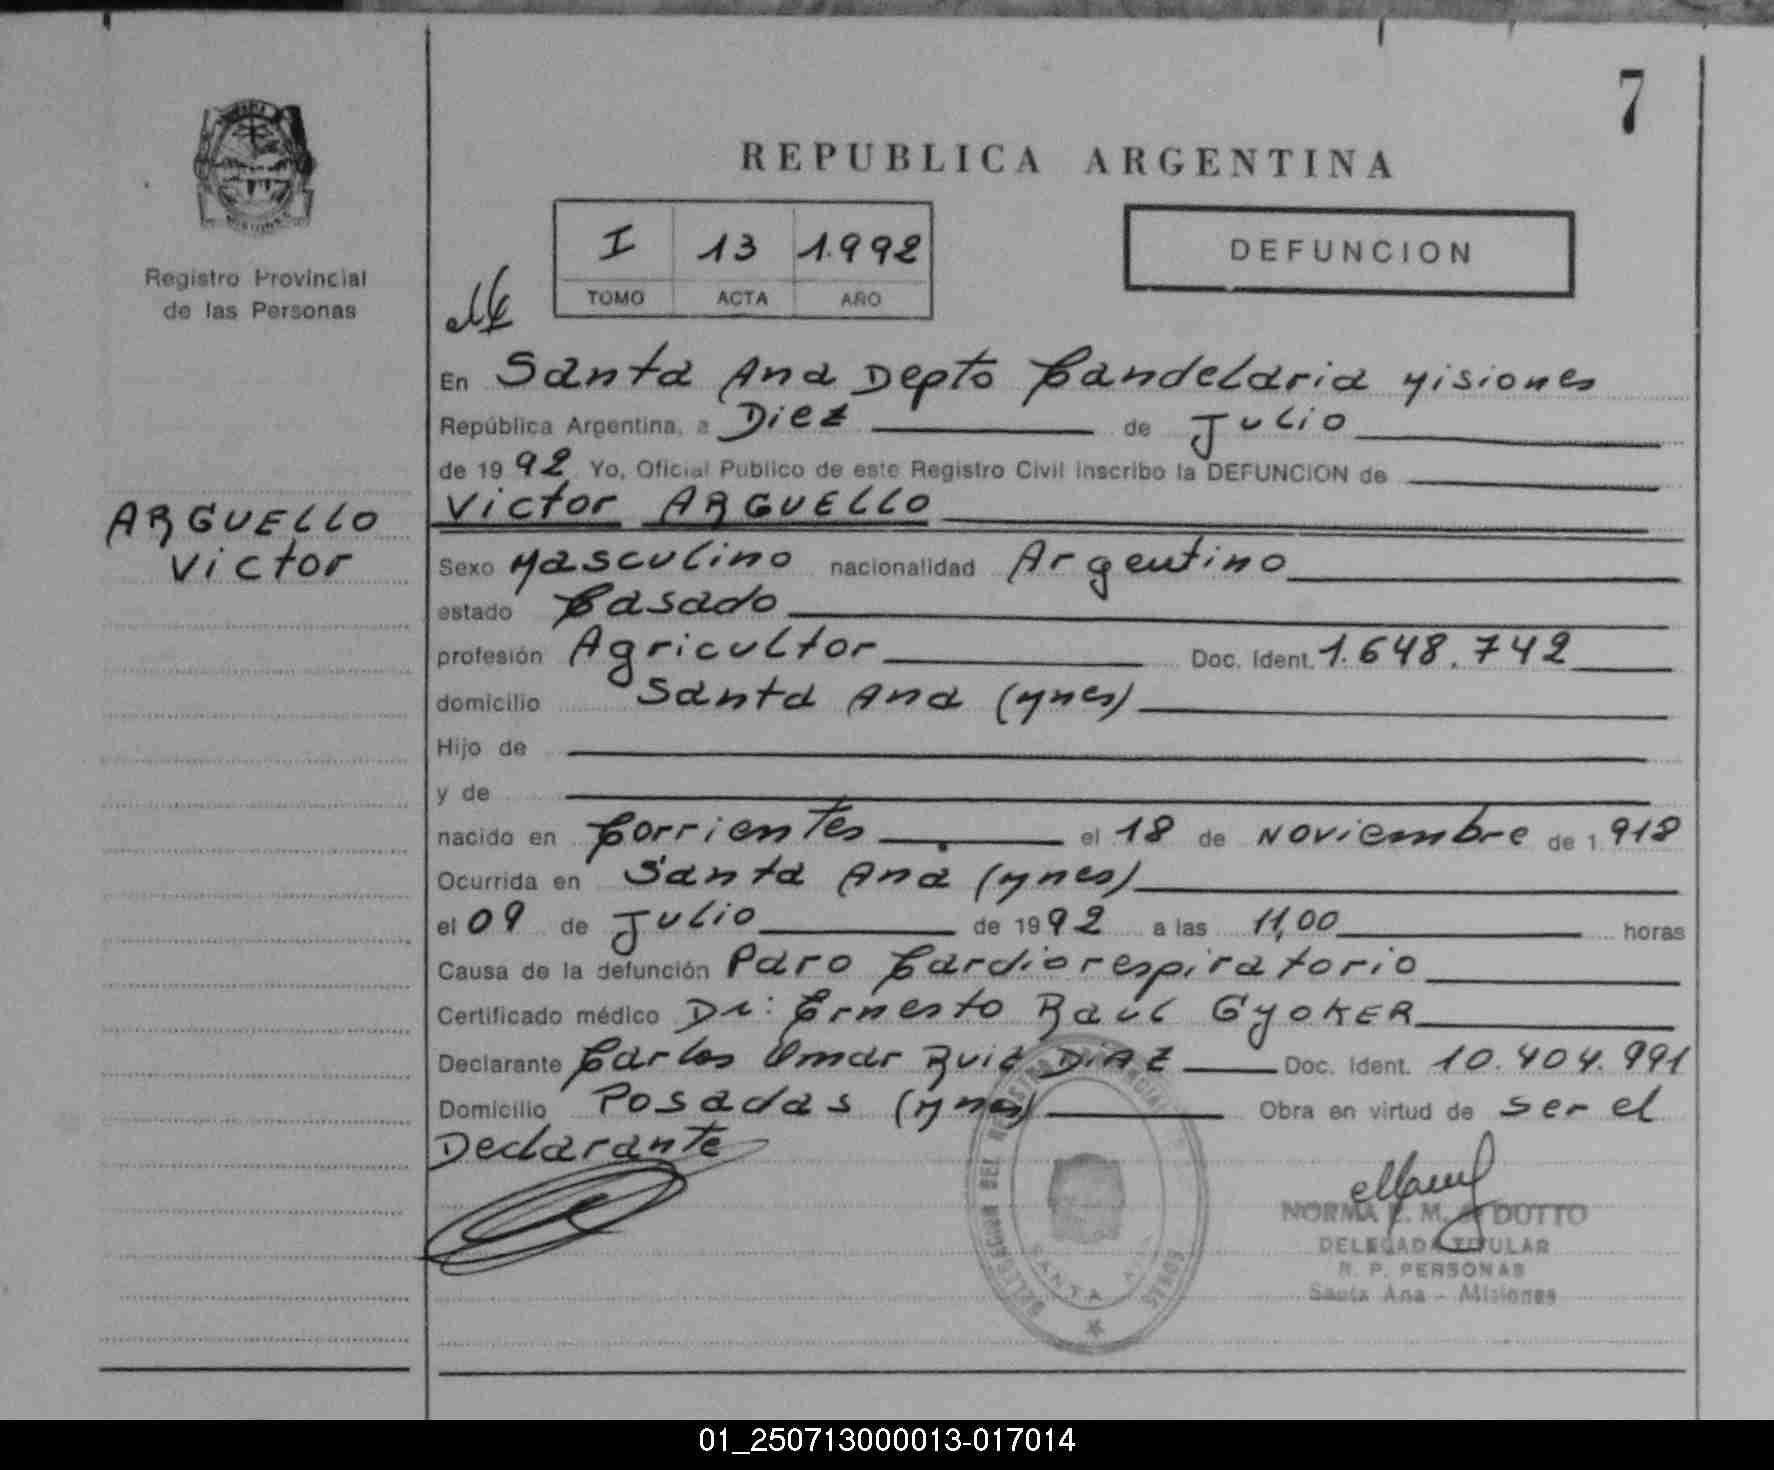 7
REPUBLICA ARGENTINA
I 13 1.992
TOMO ACTA AÑO
DEFUNCION
Registro Provincial
de las Personas
ARGUELLO
Victor
En Santa Ana Depto Candelaria Misiones
República Argentina, a Diez de Julio
de 1992 Yo, Oficial Publico de este Registro Civil inscribo la DEFUNCION de
Victor ARGUELLO
Sexo Masculino nacionalidad Argentino
estado Casado
profesión Agricultor Doc. Ident. 1.648.742
domicilio Santa Ana (Mnes)
Hijo de
y de
nacido en Corrientes el 18 de Noviembre de 1918
Ocurrida en Santa Ana (Mnes)
el 09 de Julio de 1992 a las 11,00 horas
Causa de la defunción Paro Cardiorespiratorio
Certificado médico Dr: Ernesto Raul GyOKER
Declarante Carlos Omar Ruiz DiAZ Doc. Ident. 10.404.991
Domicilio Posadas (Mnes) Obra en virtud de ser el
Declarante
NORMA M. DOTTO
DELEGADA TITULAR
R. P. PERSONAS
Santa Ana - Misiones
DEL REGISTRO
SANTA
01_250713000013-017014